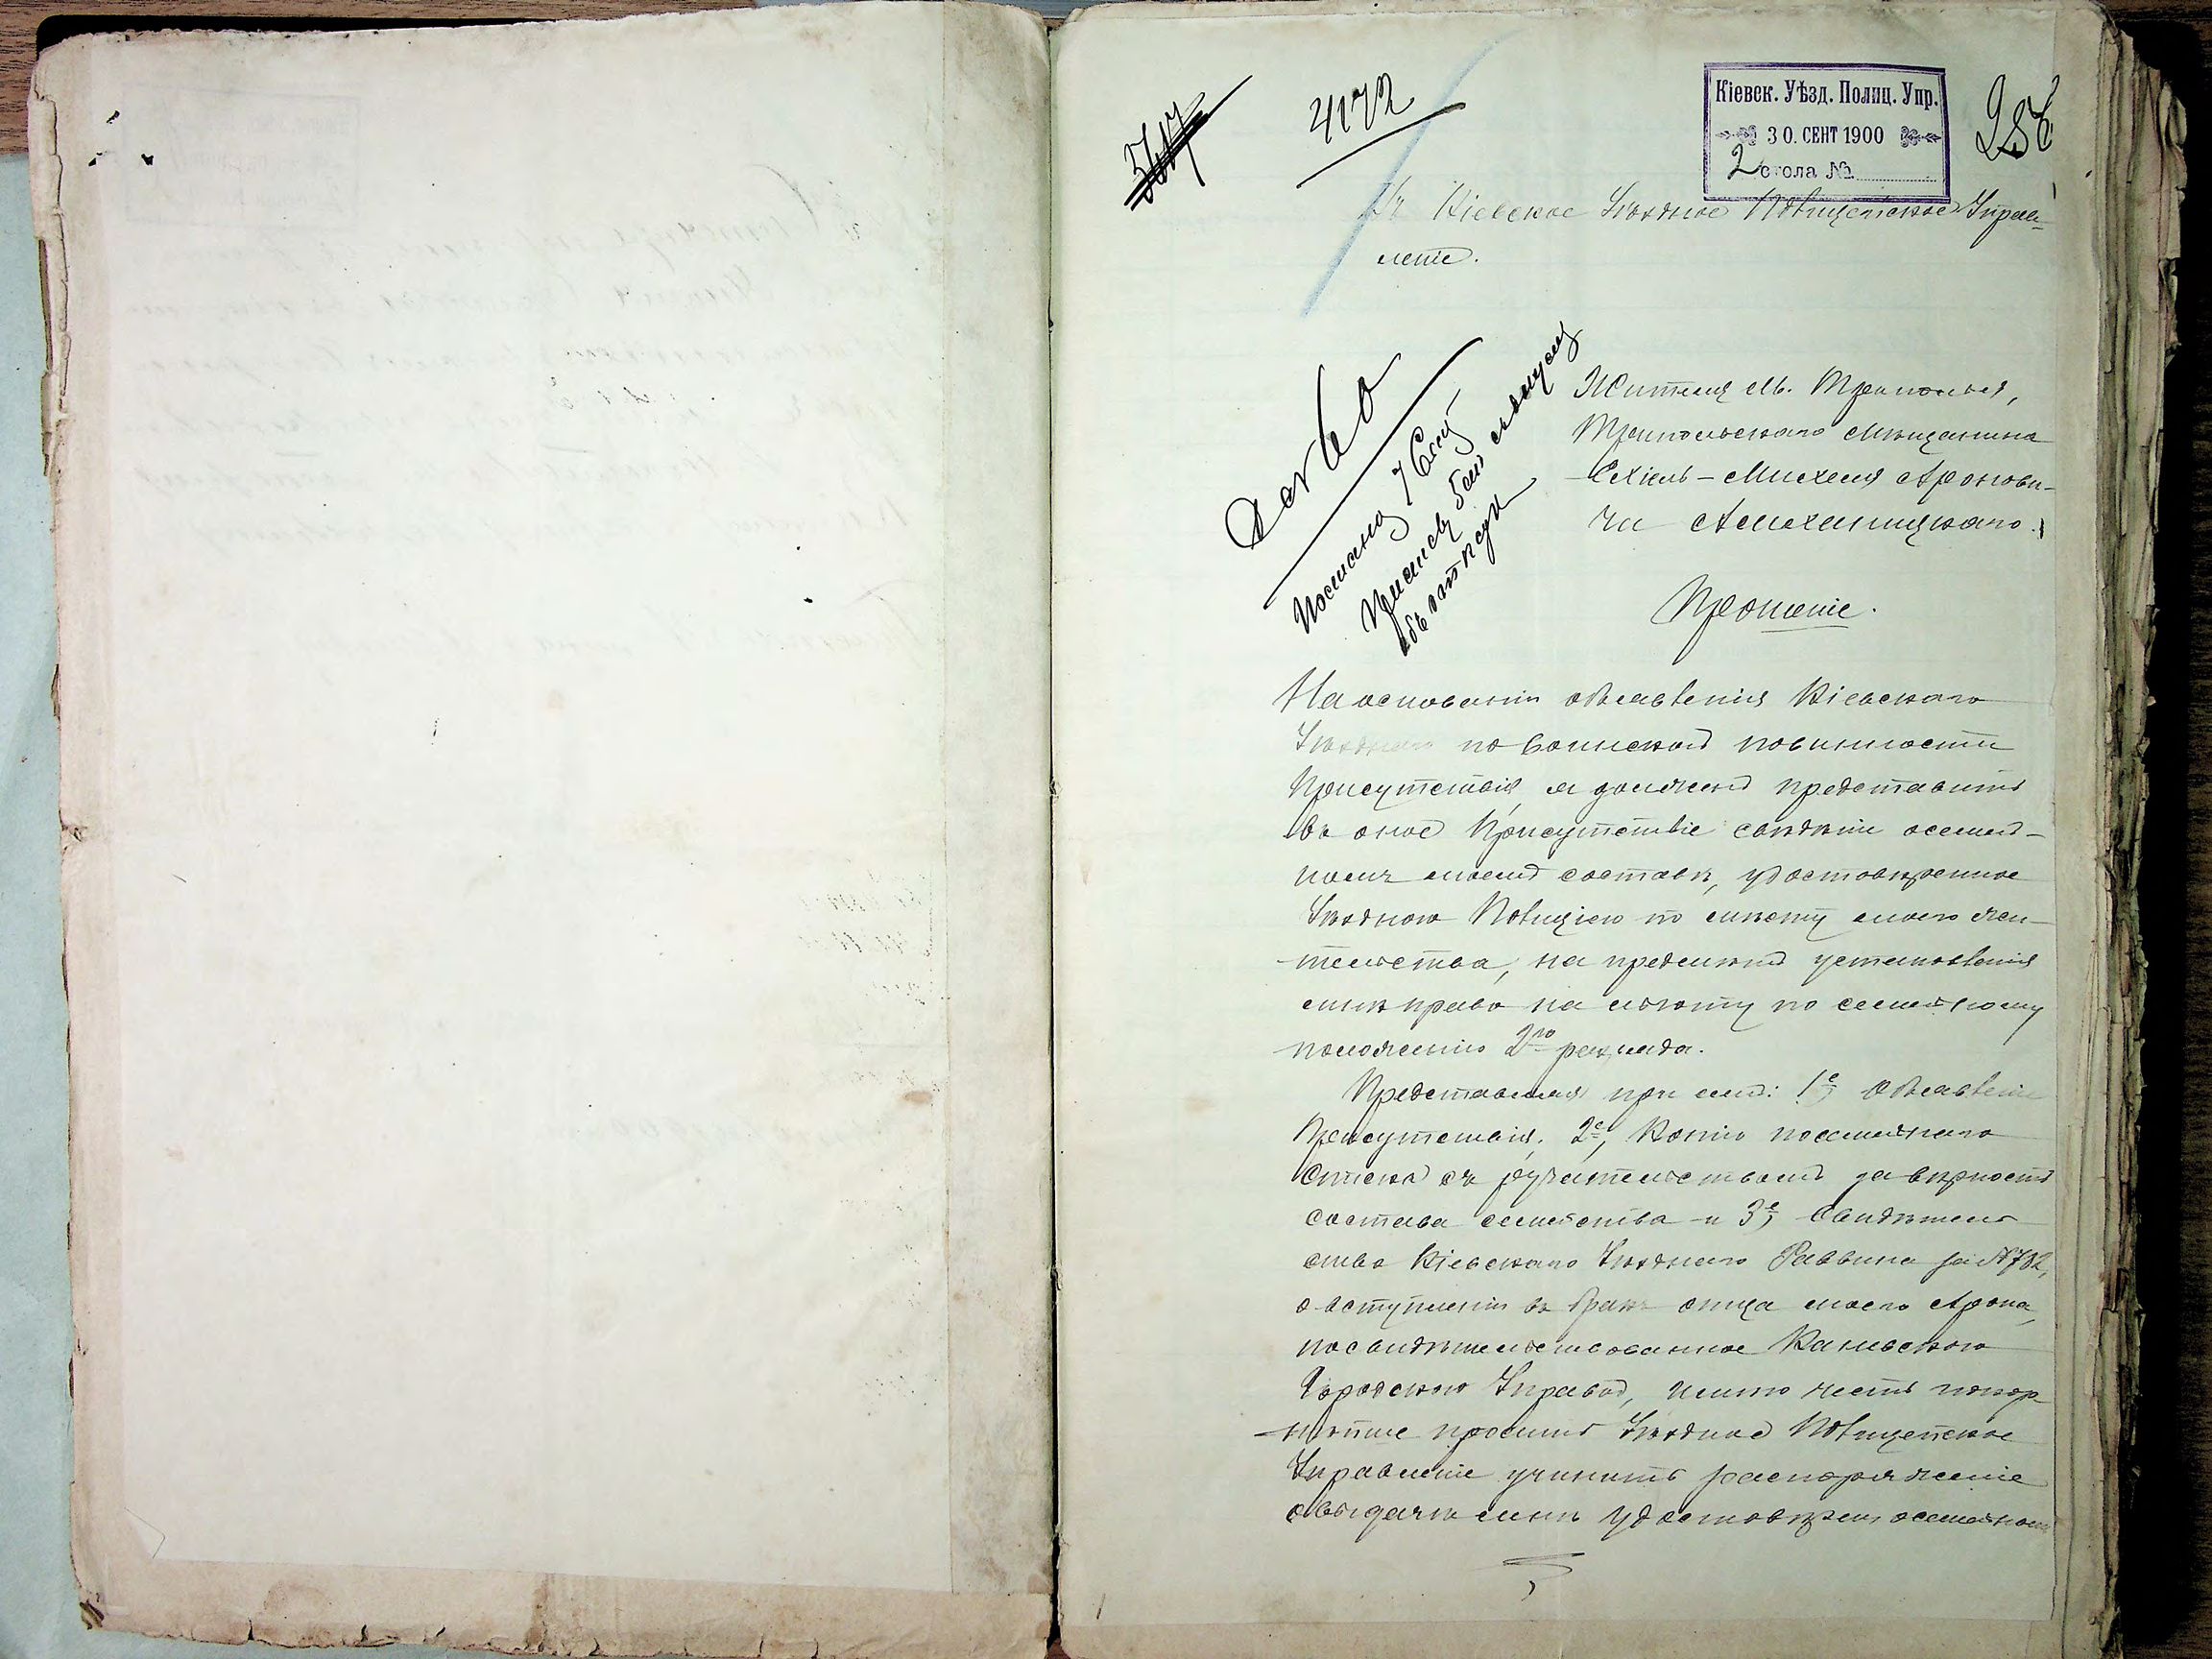 4172
Кіевск. Уѣзд. Полиц. Упр.
30. СЕНТ 1900
2 стола №
Въ Кіевское Уѣздное Полицейское Управ-
леніе.
Жителя м. Триполья,
Трипольскаго мѣщанина
Ехіель-Михеля Аронови-
ча
Прошеніе.
На основаніи объявленія Кіевскаго
Уѣзднаго по воинской повинности
Присутствія, я долженъ представить
въ оное Присутствіе свѣдѣніе о семей-
номъ моемъ составѣ, удостовѣренное
Уѣздною Полиціею по мѣсту моего жи-
тельства, на предметъ установленія
мнѣ права на льготу по семейному
положенію 2го разряда.
Представляя при семъ: 1е, Объявленіе
Присутствія, 2е, Копію посемейнаго
списка съ ручательствомъ за вѣрность
состава семейства и 3е, Свидѣтель
ство Кіевскаго Уѣзднаго Раввина за № 732,
о вступленіи въ бракъ отца моего Арона,
посвидѣтельствованное Каневскою
Городскою Управой, имѣю честь покор
нѣйше просить Уѣздное Полицейское
Управленіе учинить распоряженіе
о выдачѣ мнѣ удостовѣрен. о семейномъ